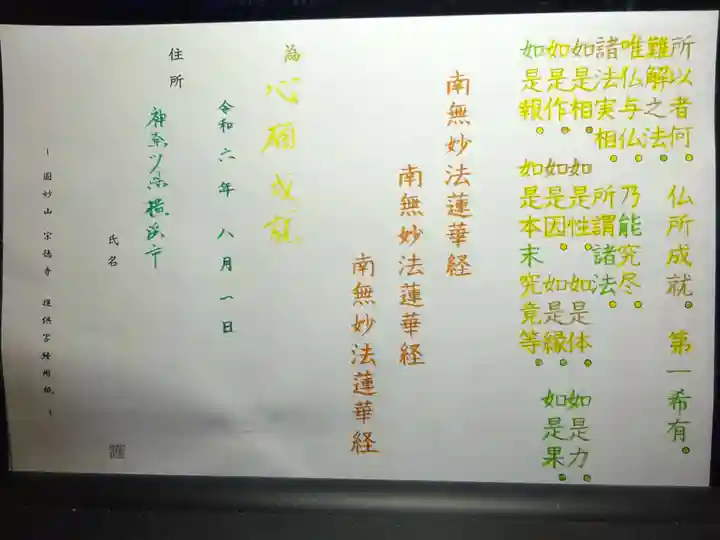 所以者何 仏所成就。第一希有。
難解之法
唯仏与仏 乃能究尽。
諸法実相 所謂諸法
如是相。如是性。如是体。如是力。
如是作。如是因。如是縁。如是果。
如是報。如是本末究竟等
南無妙法蓮華経
南無妙法蓮華経
南無妙法蓮華経
為 心願成就
令和六年八月一日
住所 神奈川県横浜市
氏名
ー 圓妙山 宗徳寺 提供写経用紙 ー